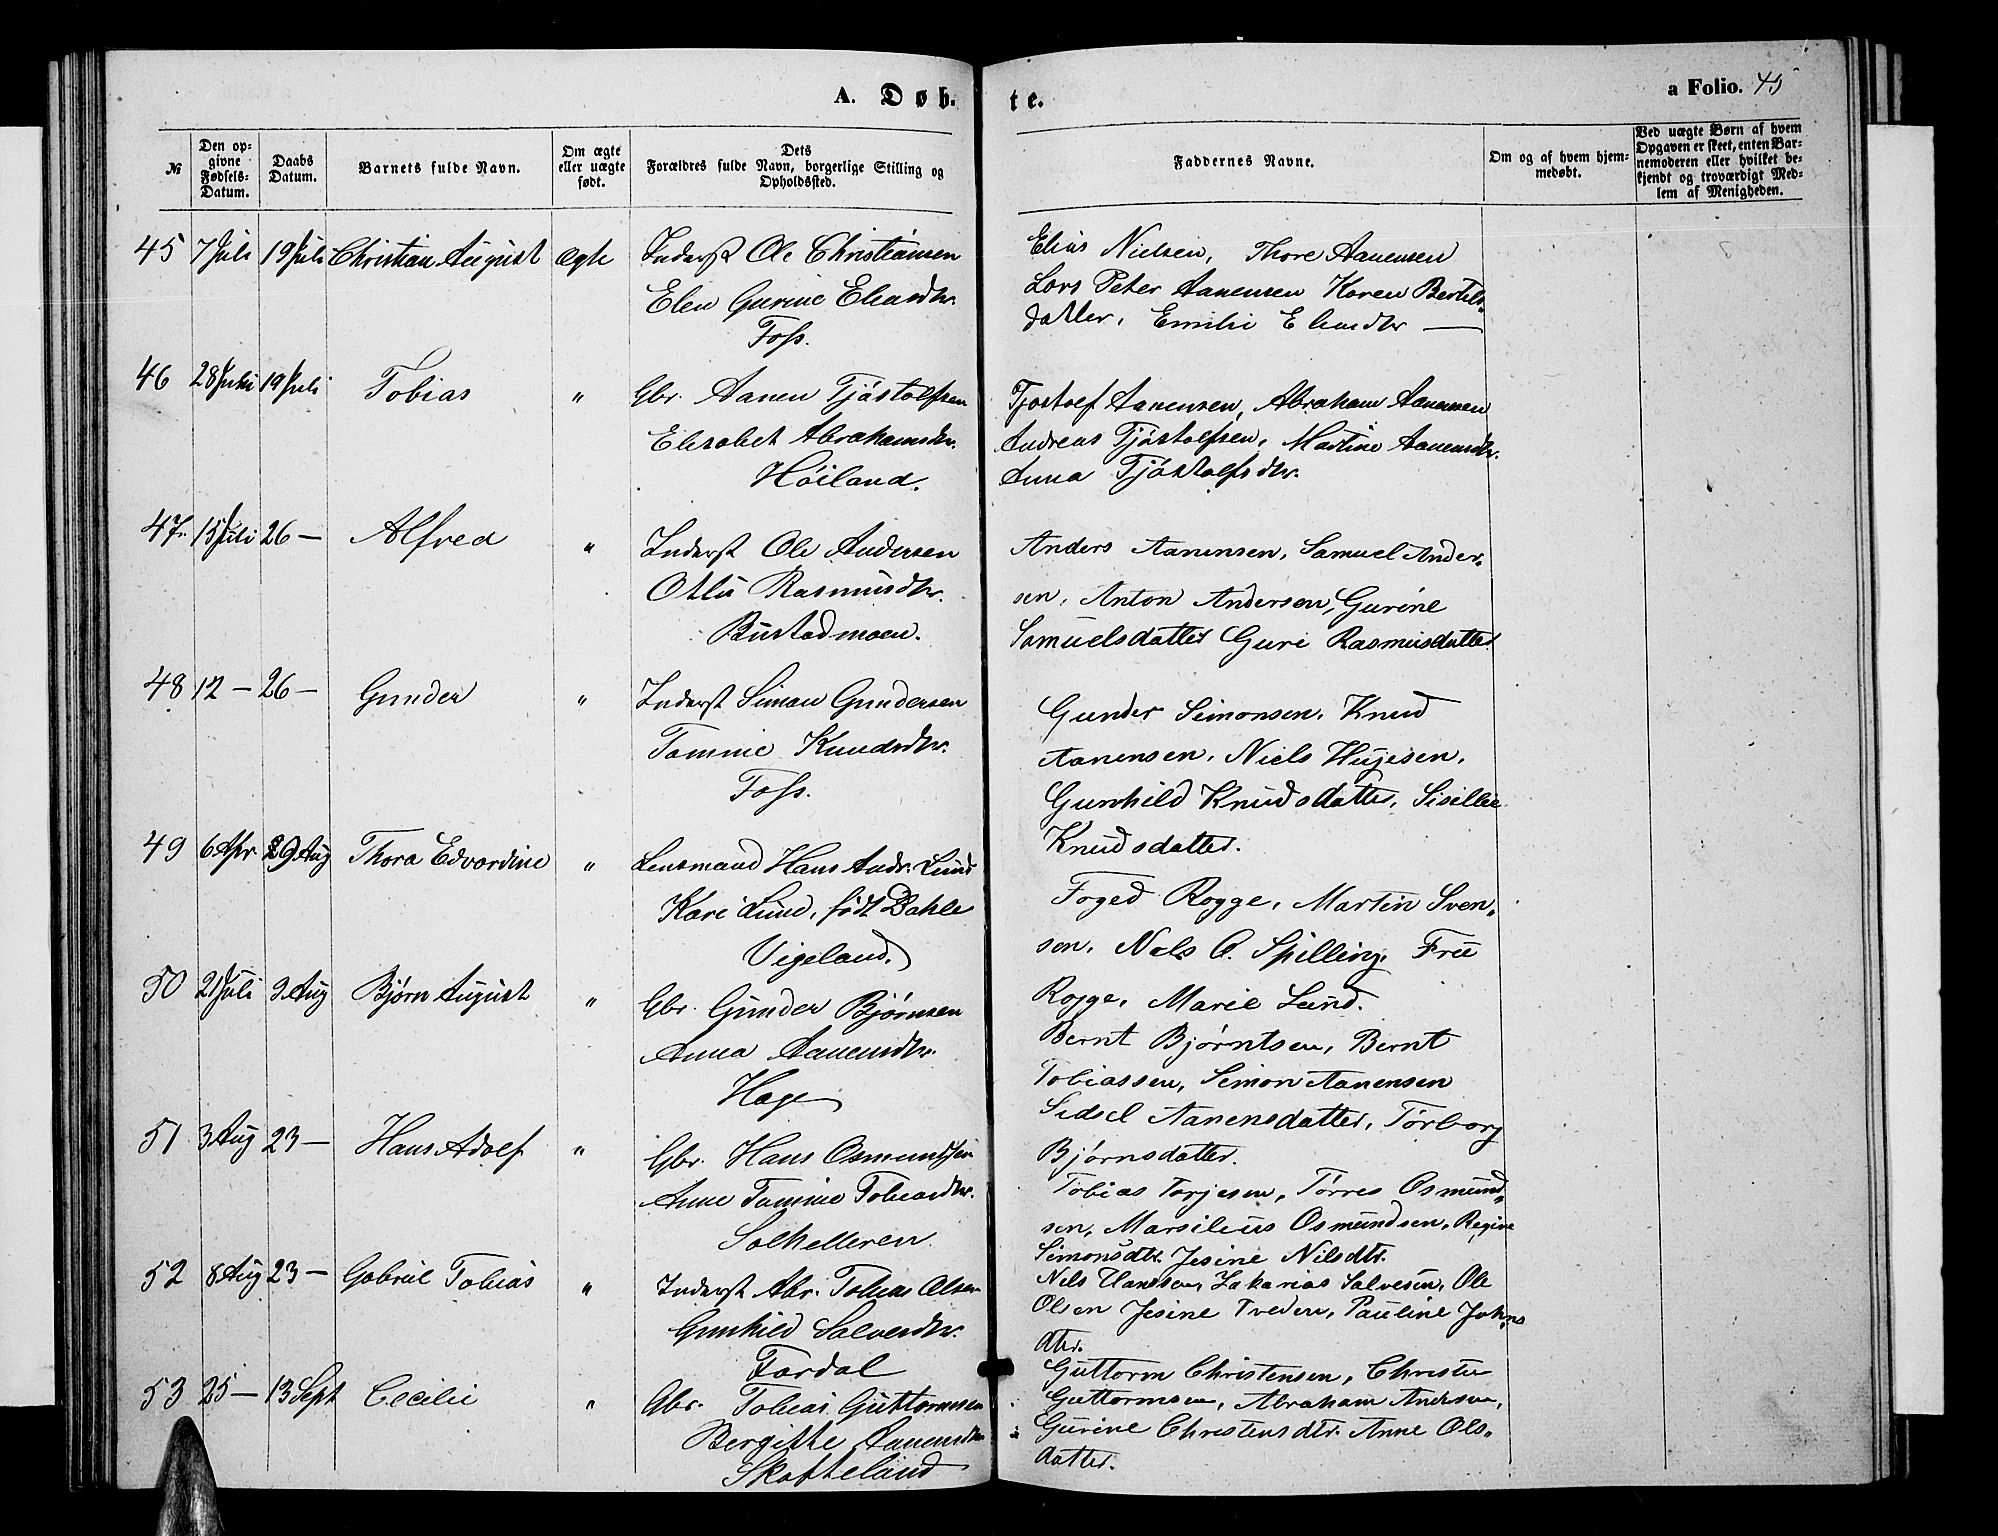 A. Døb-
te.
a Folio. 45
№
Den op-
givne
Fødsels-
Datum.
Daabs
Datum.
Barnets fulde Navn.
Om ægte
eller uægte
født.
Dets
Forældres fulde Navn, borgerlige Stilling og
Opholdssted.
Faddernes Navne.
Om og af hvem hjem-
medøbt.
Ved uægte Børn af hvem
Opgaven er skeet, enten Bar-
nemoderen eller hvilket be-
kjendt og troværdigt Med-
lem af Menigheden.
45 7 Juli 19 Juli Christian August Ægte Inderst Ole Christiansen
Elen Gurine Eliasdtr.
Foss.
Elias Nielsen, Thore Aanensen
Lars Peter Aanensen Karen Bertels-
datter, Emilie Eliasdtr —
46 28 Juni 19 Juli Tobias " Gbr. Aanen Tjøstolfsen
Elisabet Abrahamsdtr.
Høiland.
Tjostolf Aanensen, Abraham Aanensen
Andreas Tjøstolfsen, Martine Aanensdtr.
Anna Tjøstolfsdtr.
47. 15 Juli 26 — Alfred " Inderst Ole Andersen
Otlu Rasmusdtr.
Bustadmoen.
Anders Aanensen, Samuel Ander-
sen, Anton Andersen, Gurine
Samuelsdatter Guri Rasmusdatter
48 12 — 26 — Gunder " Inderst Simon Gundersen
Tomine Knudsdtr.
Foss.
Gunder Simonsen, Knud
Aanensen, Niels Hujesen,
Gunhild Knudsdatter, Sisellie
Knudsdatter.
49 6 Apr 29 Aug Thora Edvardine " Lensmand Hans Andr. Lund
Kari Lund, født Dahle
Vigeland.
Foged Rogge, Martin Sven-
sen, Nels O. Spilling, Frü
Rogge, Marie Lund.
50 21 Juli 9 Aug Bjørn August " Gbr. Gunder Bjørnsen
Anna Aanensdtr.
Hage
Bernt Bjørntsen, Bernt
Tobiassen, Simon Aanensen
Sidsel Aanensdatter, Torborg
Bjørnsdatter.
51 3 Aug 23 — Hans Adolf " Gbr. Hans Osmundsen
Anne Tomine Tobiasdtr.
Solhelleren.
Tobias Torjesen, Tørres Osmund-
sen, Marsilius Osmundsen, Regine
Simonsdtr. Jesine Nilsdtr.
52 8 Aug 23 — Gabriel Tobias " Inderst Abr. Tobias Olsen
Gunhild Salvesdtr.
Fardal
Nels Hansen, Zakarias Salvesen, Ole
Olsen Jesine Tveden, Pauline Johns
dtr.
53 25 — 13 Sept Cecilie " Gbr. Tobias Guttormsen
Bergitte Aanensdtr
Skofteland
Guttorm Christensen, Christen
Guttormsen, Abraham Andersen,
Gurine Christensdtr. Anne Ols-
datter.